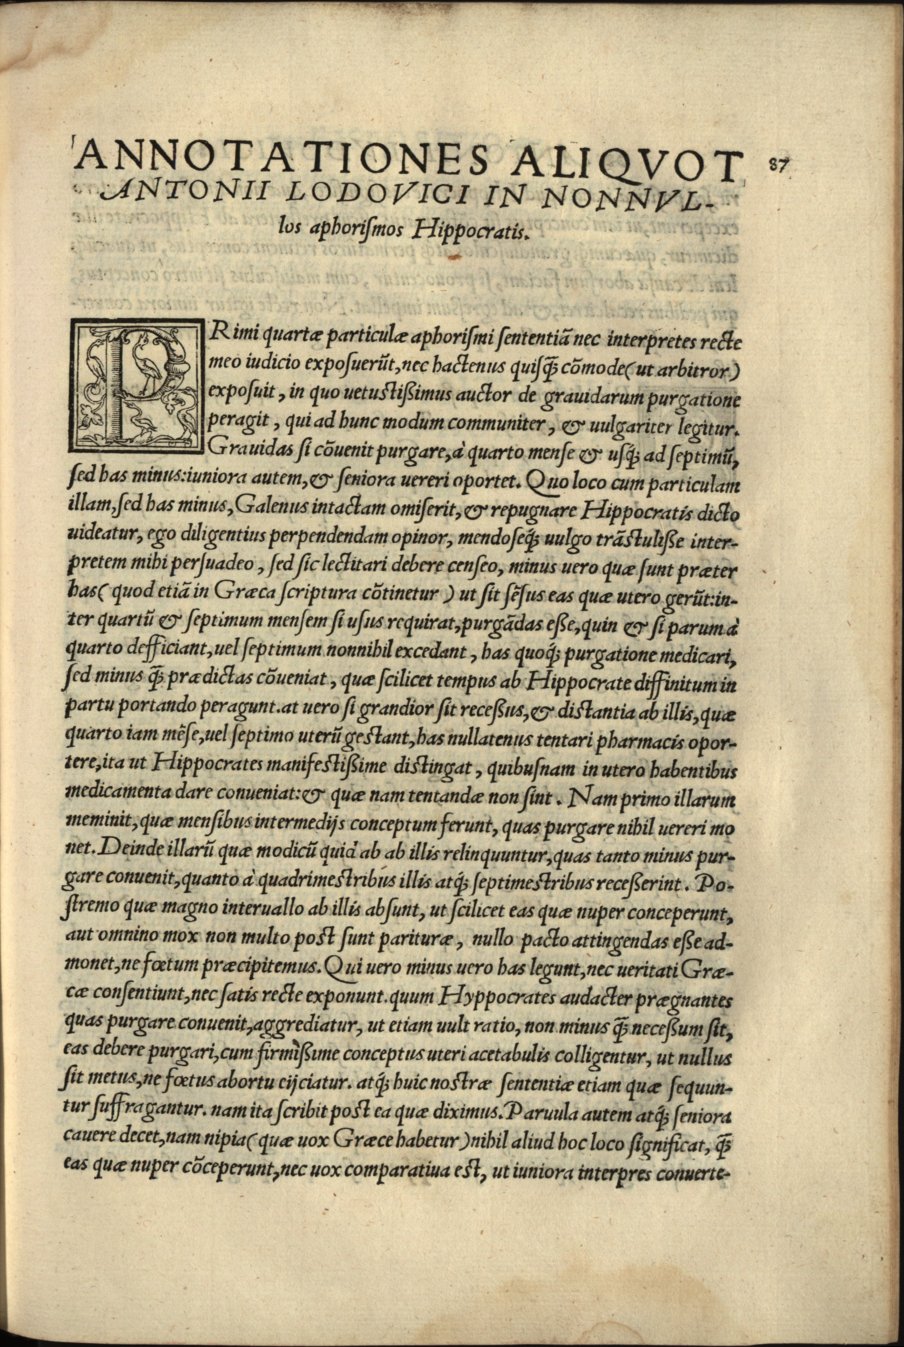 ANNOTATIONES ALIQVOT
87
ANTONII LODOVICI IN NONNVL-
los aphoriſmos Hippocratis.
PRimi quartæ particulæ aphoriſmi ſententiã nec interpretes recte
meo iudicio expoſuerũt, nec hactenus quiſq̃ cõmode (ut arbitror)
expoſuit, in quo uetuſtißimus auctor de grauidarum purgatione
peragit, qui ad hunc modum communiter, & uulgariter legitur.
Grauidas ſi cõuenit purgare, à quarto menſe & uſq̃ ad ſeptimũ,
ſed has minus: iuniora autem, & ſeniora uereri oportet. Quo loco cum particulam
illam, ſed has minus, Galenus intactam omiſerit, & repugnare Hippocratis dicto
uideatur, ego diligentius perpendendam opinor, mendoſeq̃ uulgo trãſtuliße inter-
pretem mihi perſuadeo, ſed ſic lectitari debere cenſeo, minus uero quæ ſunt præter
has (quod etiã in Græca ſcriptura cõtinetur) ut ſit ſẽſus eas quæ utero gerũt: in-
ter quartũ & ſeptimum menſem ſi uſus requirat, purgãdas eße, quin & ſi parum à
quarto defficiant, uel ſeptimum nonnihil excedant, has quoq̃ purgatione medicari,
ſed minus q̃ prædictas cõueniat, quæ ſcilicet tempus ab Hippocrate diffinitum in
partu portando peragunt. at uero ſi grandior ſit receßus, & diſtantia ab illis, quæ
quarto iam mẽſe, uel ſeptimo uterũ geſtant, has nullatenus tentari pharmacis opor-
tere, ita ut Hippocrates manifeſtißime diſtingat, quibuſnam in utero habentibus
medicamenta dare conueniat: & quæ nam tentandæ non ſint. Nam primo illarum
meminit, quæ menſibus intermedijs conceptum ferunt, quas purgare nihil uereri mo
net. Deinde illarũ quæ modicũ quid ab ab illis relinquuntur, quas tanto minus pur-
gare conuenit, quanto à quadrimeſtribus illis atq̃ ſeptimeſtribus receßerint. Po-
ſtremo quæ magno interuallo ab illis abſunt, ut ſcilicet eas quæ nuper conceperunt,
aut omnino mox non multo poſt ſunt parituræ, nullo pacto attingendas eße ad-
monet, ne fœtum præcipitemus. Qui uero minus uero has legunt, nec ueritati Græ-
cæ conſentiunt, nec ſatis recte exponunt. quum Hyppocrates audacter prægnantes
quas purgare conuenit, aggrediatur, ut etiam uult ratio, non minus q̃ neceßum ſit,
eas debere purgari, cum firmißime conceptus uteri acetabulis colligentur, ut nullus
ſit metus, ne fœtus abortu eijciatur. atq̃ huic noſtræ ſententiæ etiam quæ ſequun-
tur ſuffragantur. nam ita ſcribit poſt ea quæ diximus. Paruula autem atq̃ ſeniora
cauere decet, nam nipia (quæ uox Græce habetur) nihil aliud hoc loco ſignificat, q̃
eas quæ nuper cõceperunt, nec uox comparatiua eſt, ut iuniora interpres conuerte-